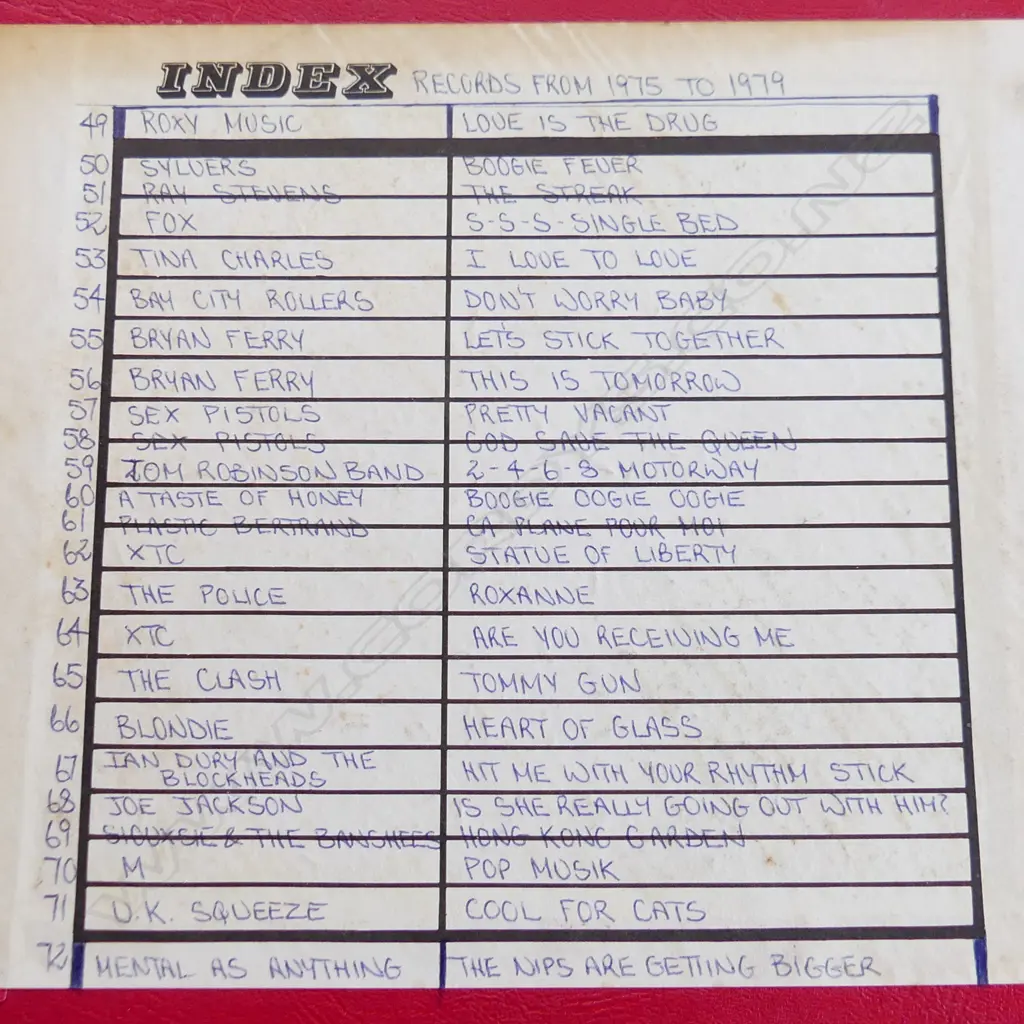 INDEX RECORDS FROM 1975 TO 1979
49 ROXY MUSIC LOVE IS THE DRUG
50 SYLVERS BOOGIE FEVER
51 RAY STEVENS THE STREAK
52 FOX S-S-S-SINGLE BED
53 TINA CHARLES I LOVE TO LOVE
54 BAY CITY ROLLERS DON'T WORRY BABY
55 BRYAN FERRY LET'S STICK TOGETHER
56 BRYAN FERRY THIS IS TOMORROW
57 SEX PISTOLS PRETTY VACANT
58 SEX PISTOLS GOD SAVE THE QUEEN
59 TOM ROBINSON BAND 2-4-6-8 MOTORWAY
60 A TASTE OF HONEY BOOGIE OOGIE OOGIE
61 PLASTIC BERTRAND CA PLANE POUR MOI
62 XTC STATUE OF LIBERTY
63 THE POLICE ROXANNE
64 XTC ARE YOU RECEIVING ME
65 THE CLASH TOMMY GUN
66 BLONDIE HEART OF GLASS
67 IAN DURY AND THE BLOCKHEADS HIT ME WITH YOUR RHYTHM STICK
68 JOE JACKSON IS SHE REALLY GOING OUT WITH HIM?
69 SIOUXSIE & THE BANSHEES HONG KONG GARDEN
70 M POP MUSIK
71 U.K. SQUEEZE COOL FOR CATS
72 MENTAL AS ANYTHING THE NIPS ARE GETTING BIGGER